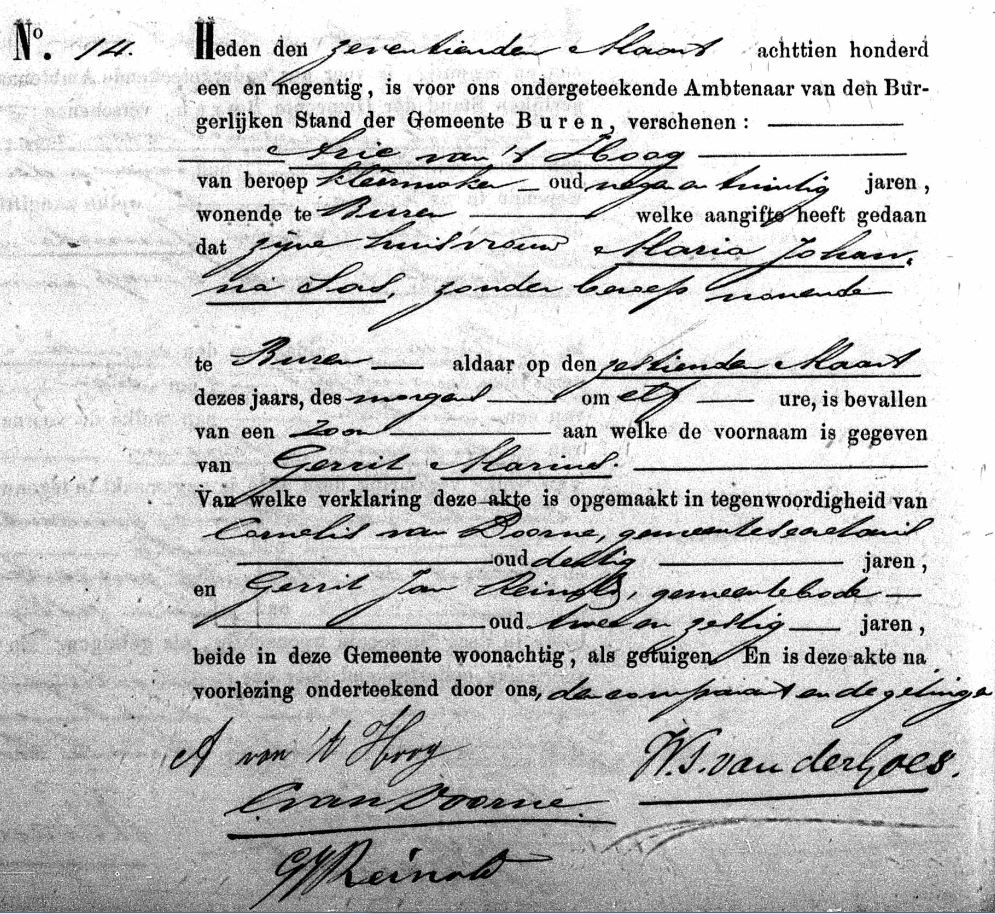 No. 14. Heden den zeventienden Maart achttien honderd
een en negentig, is voor ons ondergeteekende Ambtenaar van den Bur-
gerlijken Stand der Gemeente Buren, verschenen:
Arie van 't Hoog
van beroep kleermaker oud negen en twintig jaren,
wonende te Buren welke aangifte heeft gedaan
dat zijne huisvrouw Maria Johan-
na Sas, zonder beroep wonende
te Buren aldaar op den zestienden Maart
dezes jaars, des morgens om elf ure, is bevallen
van een zoon aan welke de voornaam is gegeven
van Gerrit Marinus.
Van welke verklaring deze akte is opgemaakt in tegenwoordigheid van
Cornelis van Doorne, gemeentesecretaris
oud dertig jaren,
en Gerrit Jan Reinolds, gemeentebode
oud twee en zestig jaren,
beide in deze Gemeente woonachtig, als getuigen. En is deze akte na
voorlezing onderteekend door ons, de comparant en de getuigen
A van 't Hoog
W.S. van der Goes.
C van Doorne
GJ Reinold